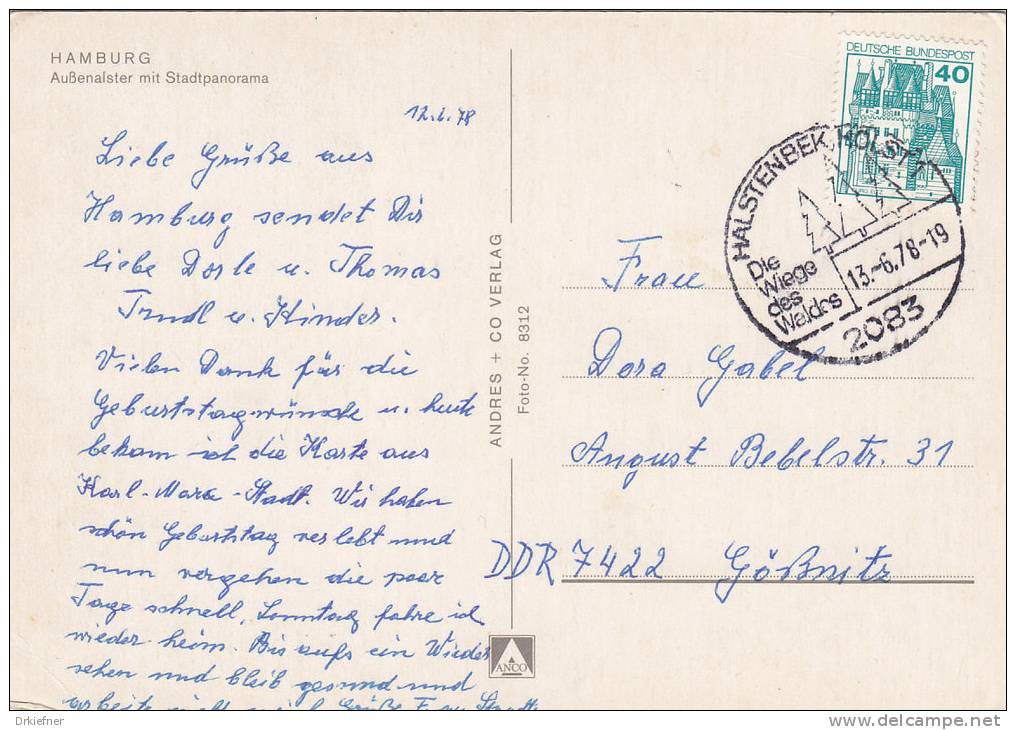 HAMBURG
Außenalster mit Stadtpanorama
12.6.78
Liebe Grüße aus
Hamburg sendet Dir
liebe Dorle u. Thomas
Trudl u. Kinder.
Vielen Dank für die
Geburtstagwünsche u. heute
bekam ich die Karte aus
Karl-Marx-Stadt. Wir haben
schön Geburtstag verlebt und
nun vergehen die paar
Tage schnell, Sonntag fahre ich
wieder heim. Bis aufs ein Wieder
sehen und bleib gesund und
arbeite nicht Grüße
ANDRES + CO VERLAG
Foto-No. 8312
ANCO
DEUTSCHE BUNDESPOST
40
HALSTENBEK, HOLST 1
Die
Wiege
des
Waldes
13.-6.78-19
2083
Frau
Dora Gabel
August Bebelstr. 31
DDR 7422 Gößnitz
Drkiefner
www.delcampe.net